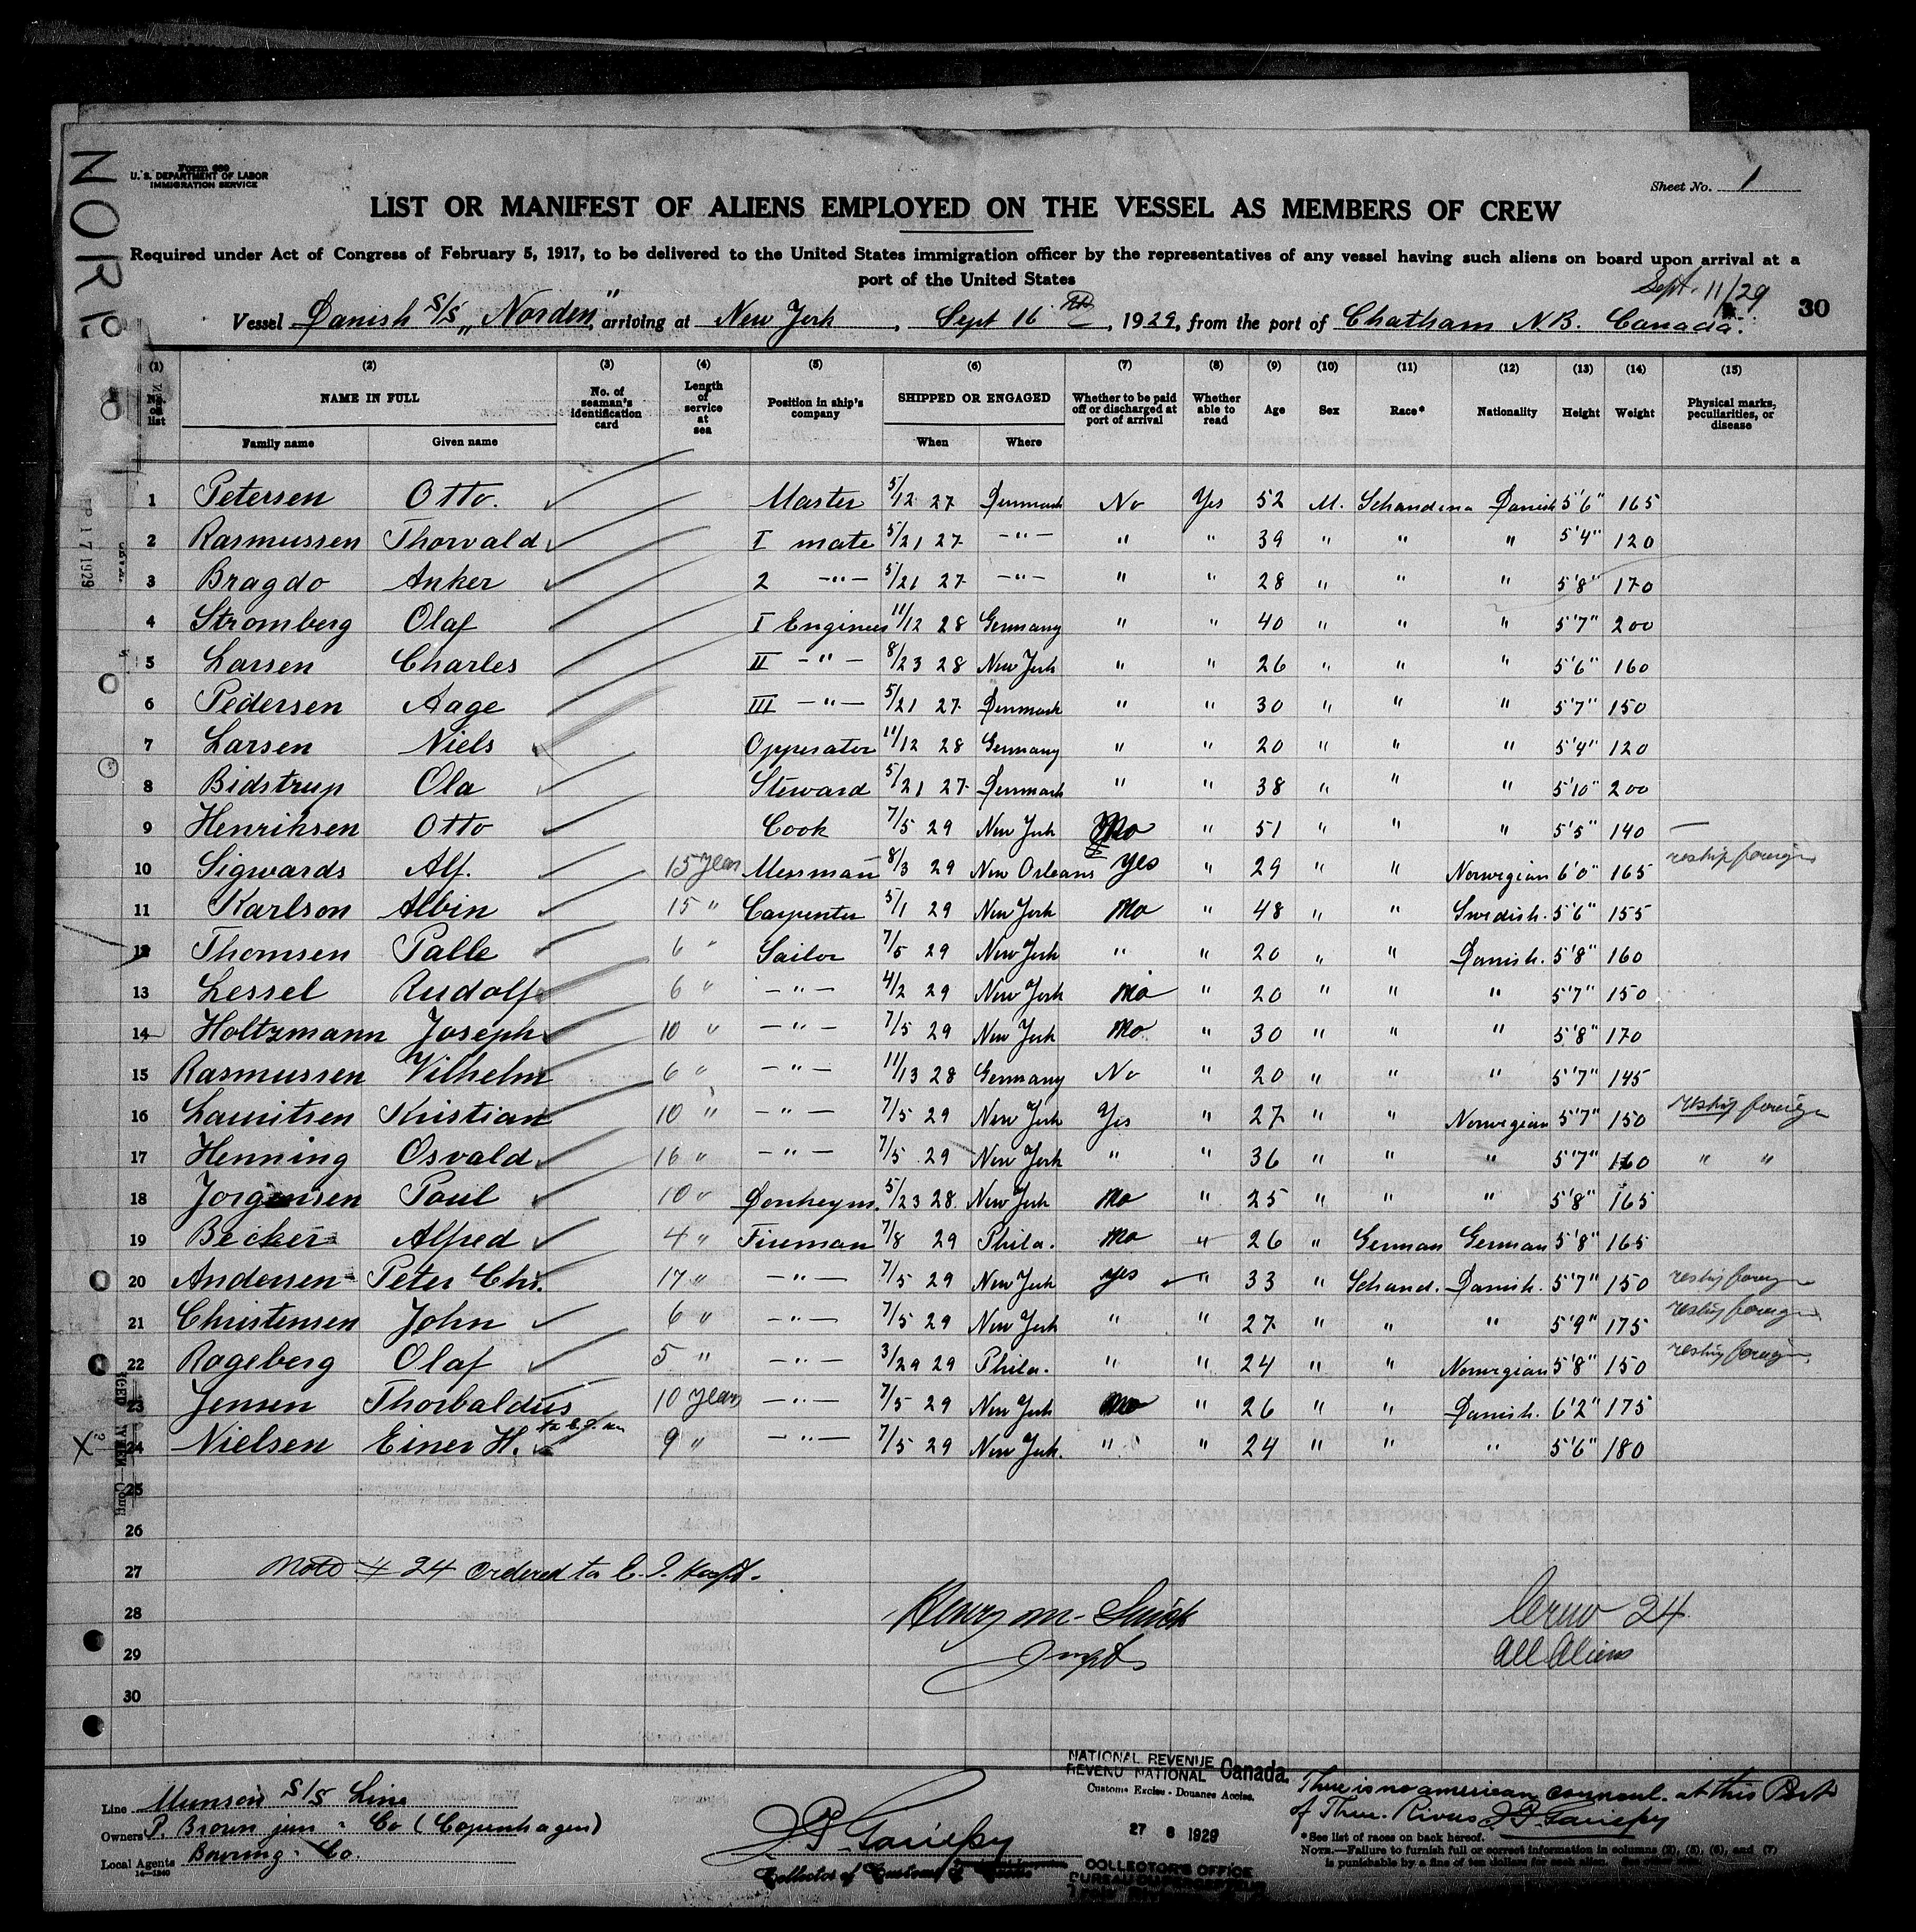 NORD
Form 680
U. S. DEPARTMENT OF LABOR
IMMIGRATION SERVICE
Sheet No. 1
LIST OR MANIFEST OF ALIENS EMPLOYED ON THE VESSEL AS MEMBERS OF CREW
Required under Act of Congress of February 5, 1917, to be delivered to the United States immigration officer by the representatives of any vessel having such aliens on board upon arrival at a
port of the United States
Sept. 11/29
Vessel Danish S/S „Norden", arriving at New York, Sept 16th, 1929, from the port of Chatham N.B. Canada. 30
(1) (2) (3) (4) (5) (6) (7) (8) (9) (10) (11) (12) (13) (14) (15)
No. on list NAME IN FULL No. of seaman's identification card Length of service at sea Position in ship's company SHIPPED OR ENGAGED Whether to be paid off or discharged at port of arrival Whether able to read Age Sex Race* Nationality Height Weight Physical marks, peculiarities, or disease
Family name Given name When Where
1 Petersen Otto. Master 5/12 27 Denmark No Yes 52 M. Schandina Danish 5'6" 165
2 Rasmussen Thorvald I mate 5/21 27 -"- " " 39 " " " 5'4" 120
3 Bragdo Anker 2 -"- 5/21 27 -"- " " 28 " " " 5'8" 170
4 Stromberg Olaf I Engineer 11/12 28 Germany " " 40 " " " 5'7" 200
5 Larsen Charles II -"- 8/23 28 New York " " 26 " " " 5'6" 160
6 Pedersen Aage III -"- 5/21 27 Denmark " " 30 " " " 5'7" 150
7 Larsen Niels Opperator 11/12 28 Germany " " 20 " " " 5'4" 120
8 Bidstrup Ola Steward 5/21 27 Denmark " " 38 " " " 5'10" 200
9 Henriksen Otto Cook 7/5 29 New York No " 51 " " " 5'5" 140 —
10 Sigwards Alf. 15 years Messman 8/3 29 New Orleans yes " 29 " " Norwegian 6'0" 165 reship foreign
11 Karlson Albin 15 " Carpenter 5/1 29 New York No " 48 " " Swedish. 5'6" 155
12 Thomsen Palle 6 " Sailor 7/5 29 New York " " 20 " " Danish. 5'8" 160
13 Lessel Rudolf 6 " -"- 4/2 29 New York No " 20 " " " 5'7" 150
14 Holtzmann Joseph 10 " -"- 7/5 29 New York No " 30 " " " 5'8" 170
15 Rasmussen Vilhelm 6 " -"- 11/13 28 Germany No " 20 " " " 5'7" 145
16 Lauritsen Kristian 10 " -"- 7/5 29 New York Yes " 27 " " Norwegian 5'7" 150 reship foreign
17 Henning Osvald 16 " -"- 7/5 29 New York " " 36 " " " 5'7" 160 " "
18 Jorgensen Poul 10 " Donkeym. 5/23 28 New York No " 25 " " " 5'8" 165
19 Becker Alfred 4 " Fireman 7/8 29 Phila. No " 26 " German German 5'8" 165
20 Andersen Peter Chr. 17 " -"- 7/5 29 New York yes " 33 " Schand. Danish. 5'7" 150 reship foreign
21 Christensen John 6 " -"- 7/5 29 New York " " 27 " " " 5'9" 175 reship foreign
22 Rageberg Olaf 5 " -"- 3/29 29 Phila. " " 24 " " Norwegian 5'8" 150 reship foreign
23 Jensen Thorbaldus 10 years -"- 7/5 29 New York No " 26 " " Danish. 6'2" 175
X 24 Nielsen Einer H. 9 " -"- 7/5 29 New York. " " 24 " " " 5'6" 180
25
26
27 Note # 24 ordered to E. I. Hosptl.
28 Henry M. Crew 24
29 Inspt All Aliens
30
Line Munson S/S Line
Owners P. Brown jun - Co (Copenhagen)
Local Agents Bowring - Co.
14—1240
Collector of Customs
NATIONAL REVENUE
REVENU NATIONAL Canada.
Customs Excise - Douanes Accise.
27 8 1929
COLLECTOR'S OFFICE
There is no american counsul. at this Port
of Three Rivers
*See list of races on back hereof.
NOTE.—Failure to furnish full or correct information in columns (2), (5), (6), and (7)
is punishable by a fine of ten dollars for each alien.
SEP 17 1929